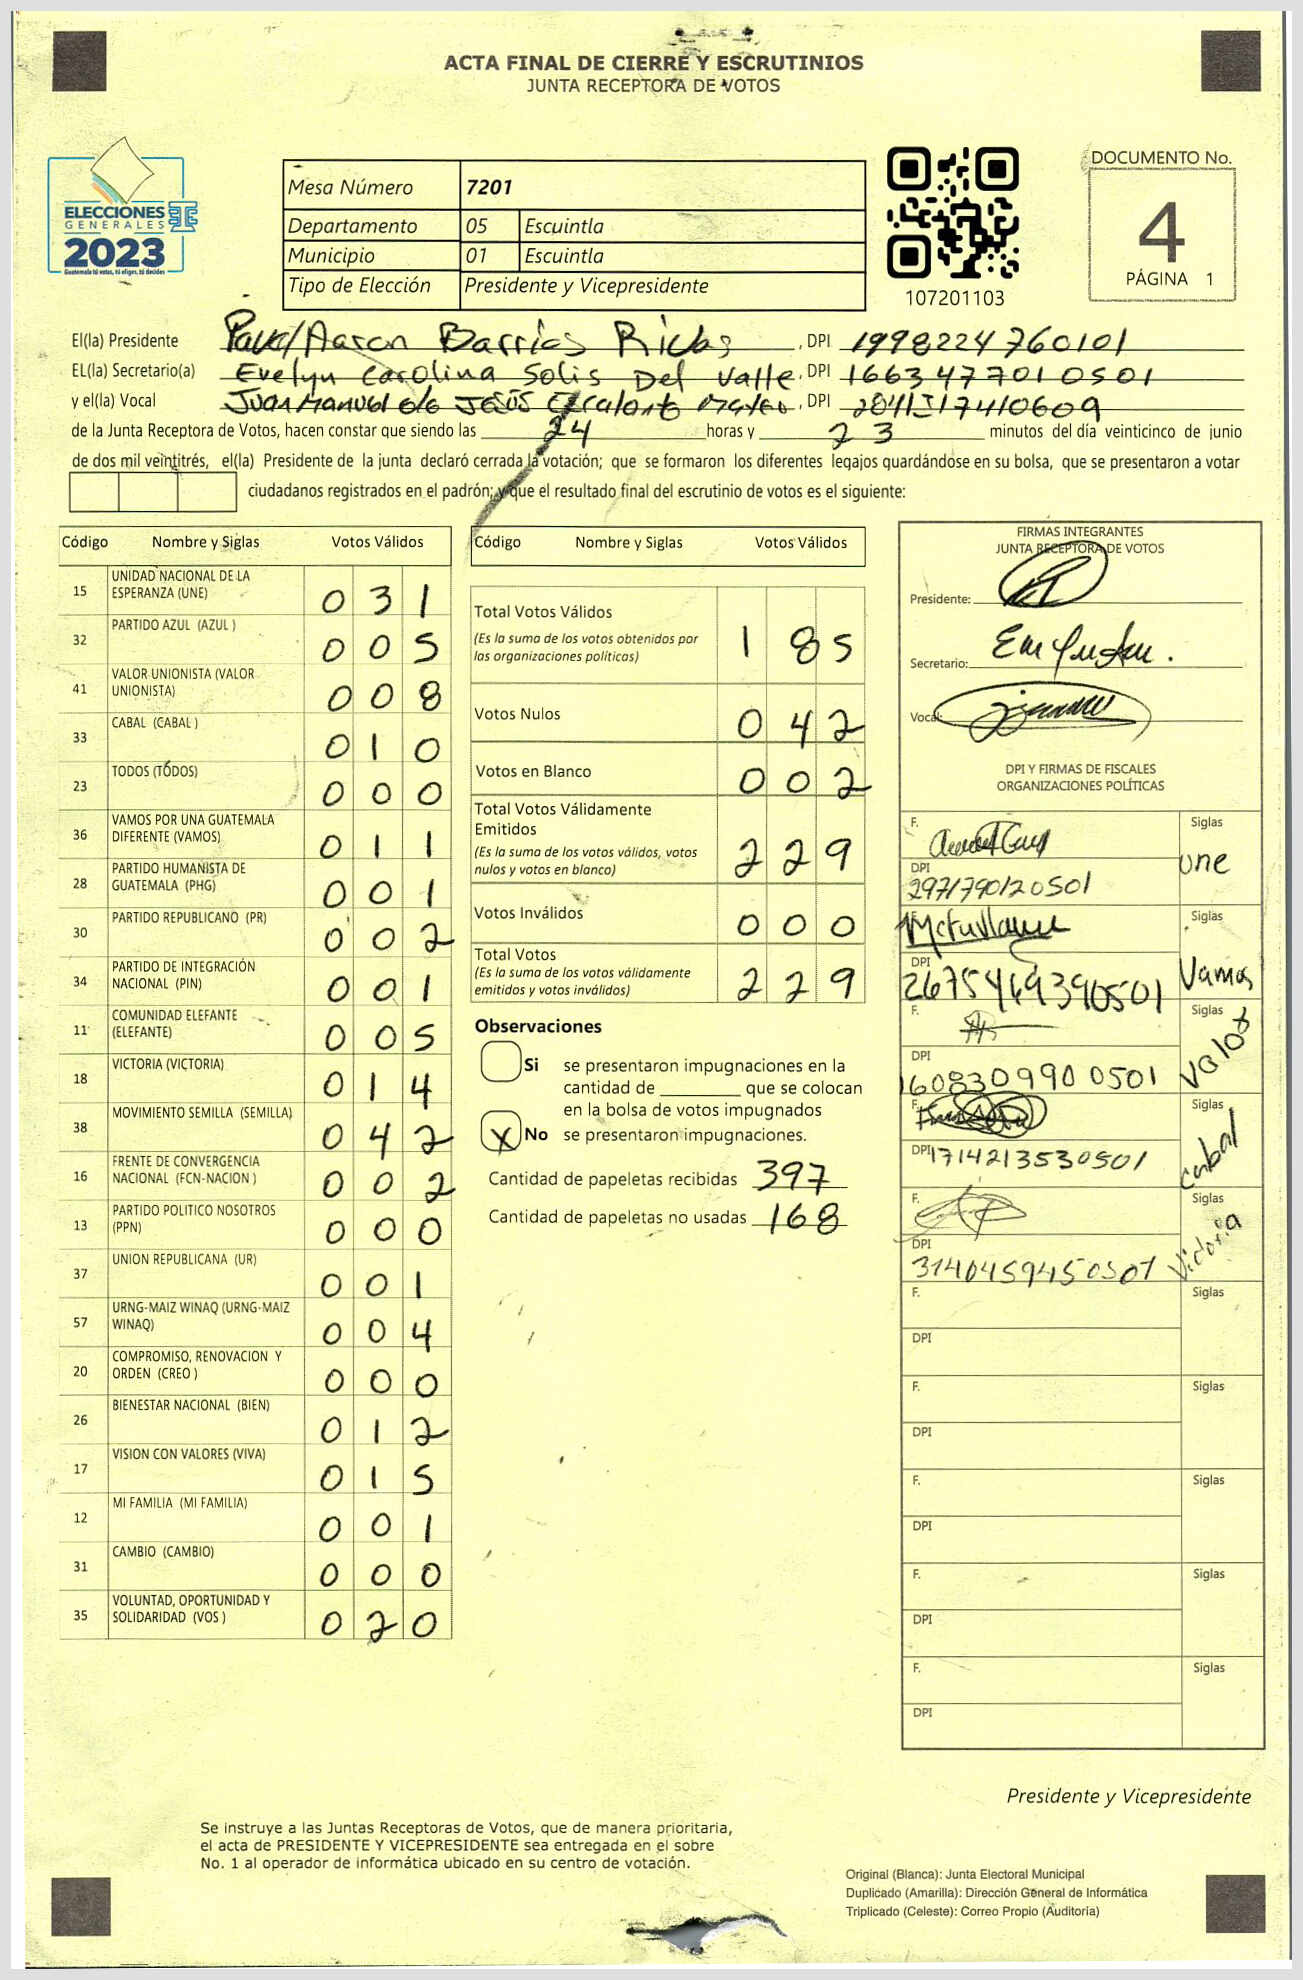 ACTA FINAL DE CIERRE Y ESCRUTINIOS
JUNTA RECEPTORA DE VOTOS
ELECCIONES
GENERALES
2023
Guatemala tú votas, tú eliges, tú decides
Mesa Número 7201
Departamento 05 Escuintla
Municipio 01 Escuintla
Tipo de Elección Presidente y Vicepresidente
107201103
DOCUMENTO No.
4
PÁGINA 1
El(la) Presidente Pavel Aaron Barrios Rivas, DPI 1998224760101
EL(la) Secretario(a) Evelyn Carolina Solis Del Valle, DPI 1663477010501
y el(la) Vocal Juan Manuel de Jesús Escalante, DPI
de la Junta Receptora de Votos, hacen constar que siendo las 24 horas y 23 minutos del día veinticinco de junio
de dos mil veintitrés, el(la) Presidente de la junta declaró cerrada la votación; que se formaron los diferentes legajos guardándose en su bolsa, que se presentaron a votar
ciudadanos registrados en el padrón; y que el resultado final del escrutinio de votos es el siguiente:
Código Nombre y Siglas Votos Válidos
15 UNIDAD NACIONAL DE LA
ESPERANZA (UNE) 0 3 1
32 PARTIDO AZUL (AZUL ) 0 0 5
41 VALOR UNIONISTA (VALOR
UNIONISTA) 0 0 8
33 CABAL (CABAL ) 0 1 0
23 TODOS (TODOS) 0 0 0
36 VAMOS POR UNA GUATEMALA
DIFERENTE (VAMOS) 0 1 1
28 PARTIDO HUMANISTA DE
GUATEMALA (PHG) 0 0 1
30 PARTIDO REPUBLICANO (PR) 0 0 2
34 PARTIDO DE INTEGRACIÓN
NACIONAL (PIN) 0 0 1
11 COMUNIDAD ELEFANTE
(ELEFANTE) 0 0 5
18 VICTORIA (VICTORIA) 0 1 4
38 MOVIMIENTO SEMILLA (SEMILLA) 0 4 2
16 FRENTE DE CONVERGENCIA
NACIONAL (FCN-NACION ) 0 0 2
13 PARTIDO POLITICO NOSOTROS
(PPN) 0 0 0
37 UNION REPUBLICANA (UR) 0 0 1
57 URNG-MAIZ WINAQ (URNG-MAIZ
WINAQ) 0 0 4
20 COMPROMISO, RENOVACION Y
ORDEN (CREO ) 0 0 0
26 BIENESTAR NACIONAL (BIEN) 0 1 2
17 VISION CON VALORES (VIVA) 0 1 5
12 MI FAMILIA (MI FAMILIA) 0 0 1
31 CAMBIO (CAMBIO) 0 0 0
35 VOLUNTAD, OPORTUNIDAD Y
SOLIDARIDAD (VOS ) 0 2 0
Código Nombre y Siglas Votos Válidos
Total Votos Válidos 1 8 5
(Es la suma de los votos obtenidos por
las organizaciones políticas)
Votos Nulos 0 4 2
Votos en Blanco 0 0 2
Total Votos Válidamente
Emitidos 2 2 9
(Es la suma de los votos válidos, votos
nulos y votos en blanco)
Votos Inválidos 0 0 0
Total Votos 2 2 9
(Es la suma de los votos válidamente
emitidos y votos inválidos)
Observaciones
Si se presentaron impugnaciones en la
cantidad de ________ que se colocan
en la bolsa de votos impugnados
X No se presentaron impugnaciones.
Cantidad de papeletas recibidas 397
Cantidad de papeletas no usadas 168
FIRMAS INTEGRANTES
JUNTA RECEPTORA DE VOTOS
Presidente:
Secretario:
Vocal:
DPI Y FIRMAS DE FISCALES
ORGANIZACIONES POLÍTICAS
F. Siglas
une
DPI
2971790120501
F. Siglas
Vamos
DPI
2675469390501
F. Siglas
Valor
DPI
1608309900501
F. Siglas
cabal
DPI 1714213530501
F. Siglas
Victoria
DPI
3140459450501
F. Siglas
DPI
F. Siglas
DPI
F. Siglas
DPI
F. Siglas
DPI
F. Siglas
DPI
Presidente y Vicepresidente
Se instruye a las Juntas Receptoras de Votos, que de manera prioritaria,
el acta de PRESIDENTE Y VICEPRESIDENTE sea entregada en el sobre
No. 1 al operador de informática ubicado en su centro de votación.
Original (Blanca): Junta Electoral Municipal
Duplicado (Amarilla): Dirección General de Informática
Triplicado (Celeste): Correo Propio (Auditoría)